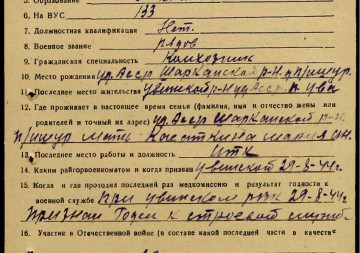 6. На ВУС 133
7. Должностная квалификация Нет.
8. Военное звание рядов
9. Гражданская специальность Колхозник
10. Место рождения уд. Асср Шарканской р-н
11. Последнее место жительства Увинской р-н уд Асср п Ува
12. Где проживает в настоящее время семья (фамилия, имя и отчество жены или
родителей и точный их адрес) уд. Асср Шарканской р-н
мать- Касаткина Мария
13. Последнее место работы и должность
14. Каким райгорвоенкоматом и когда призван Увинской 29-8-44г.
15. Когда и где проходил последний раз медкомиссию и результат годности к
военной службе При Увинском рвк 29-8-44г
признан Годен к строевой служб
16. Участие в Отечественной войне (в составе какой последней части в качестве